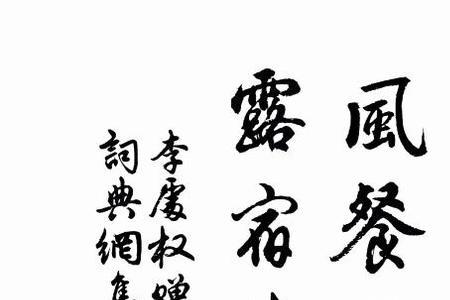 風餐
露宿
李處权
詞典網